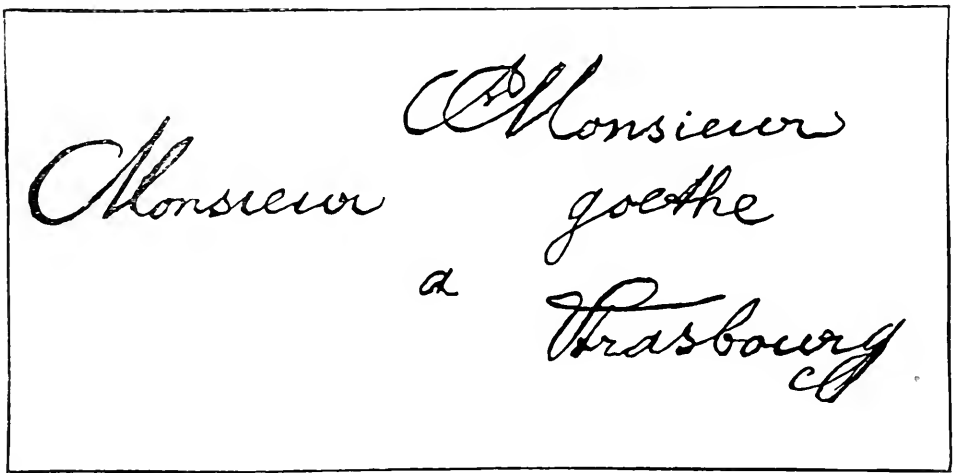 Monsieur
Monsieur
goethe
a
Strasbourg